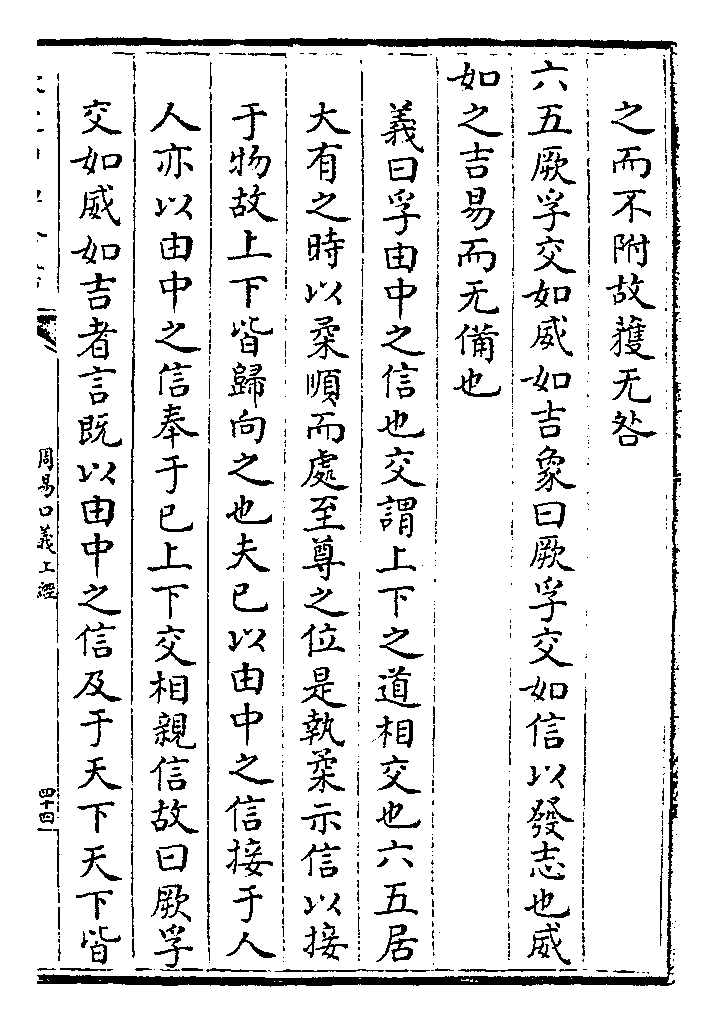 之而不附故獲无咎
六五厥孚交如威如吉象曰厥孚交如信以發志也威
如之吉易而无備也
義曰孚由中之信也交謂上下之道相交也六五居
大有之時以柔順而處至尊之位是執柔示信以接
于物故上下皆歸向之也夫已以由中之信接于人
人亦以由中之信奉于已上下交相親信故曰厥孚
交如威如吉者言既以由中之信及于天下天下皆
周易口義上經
四十四